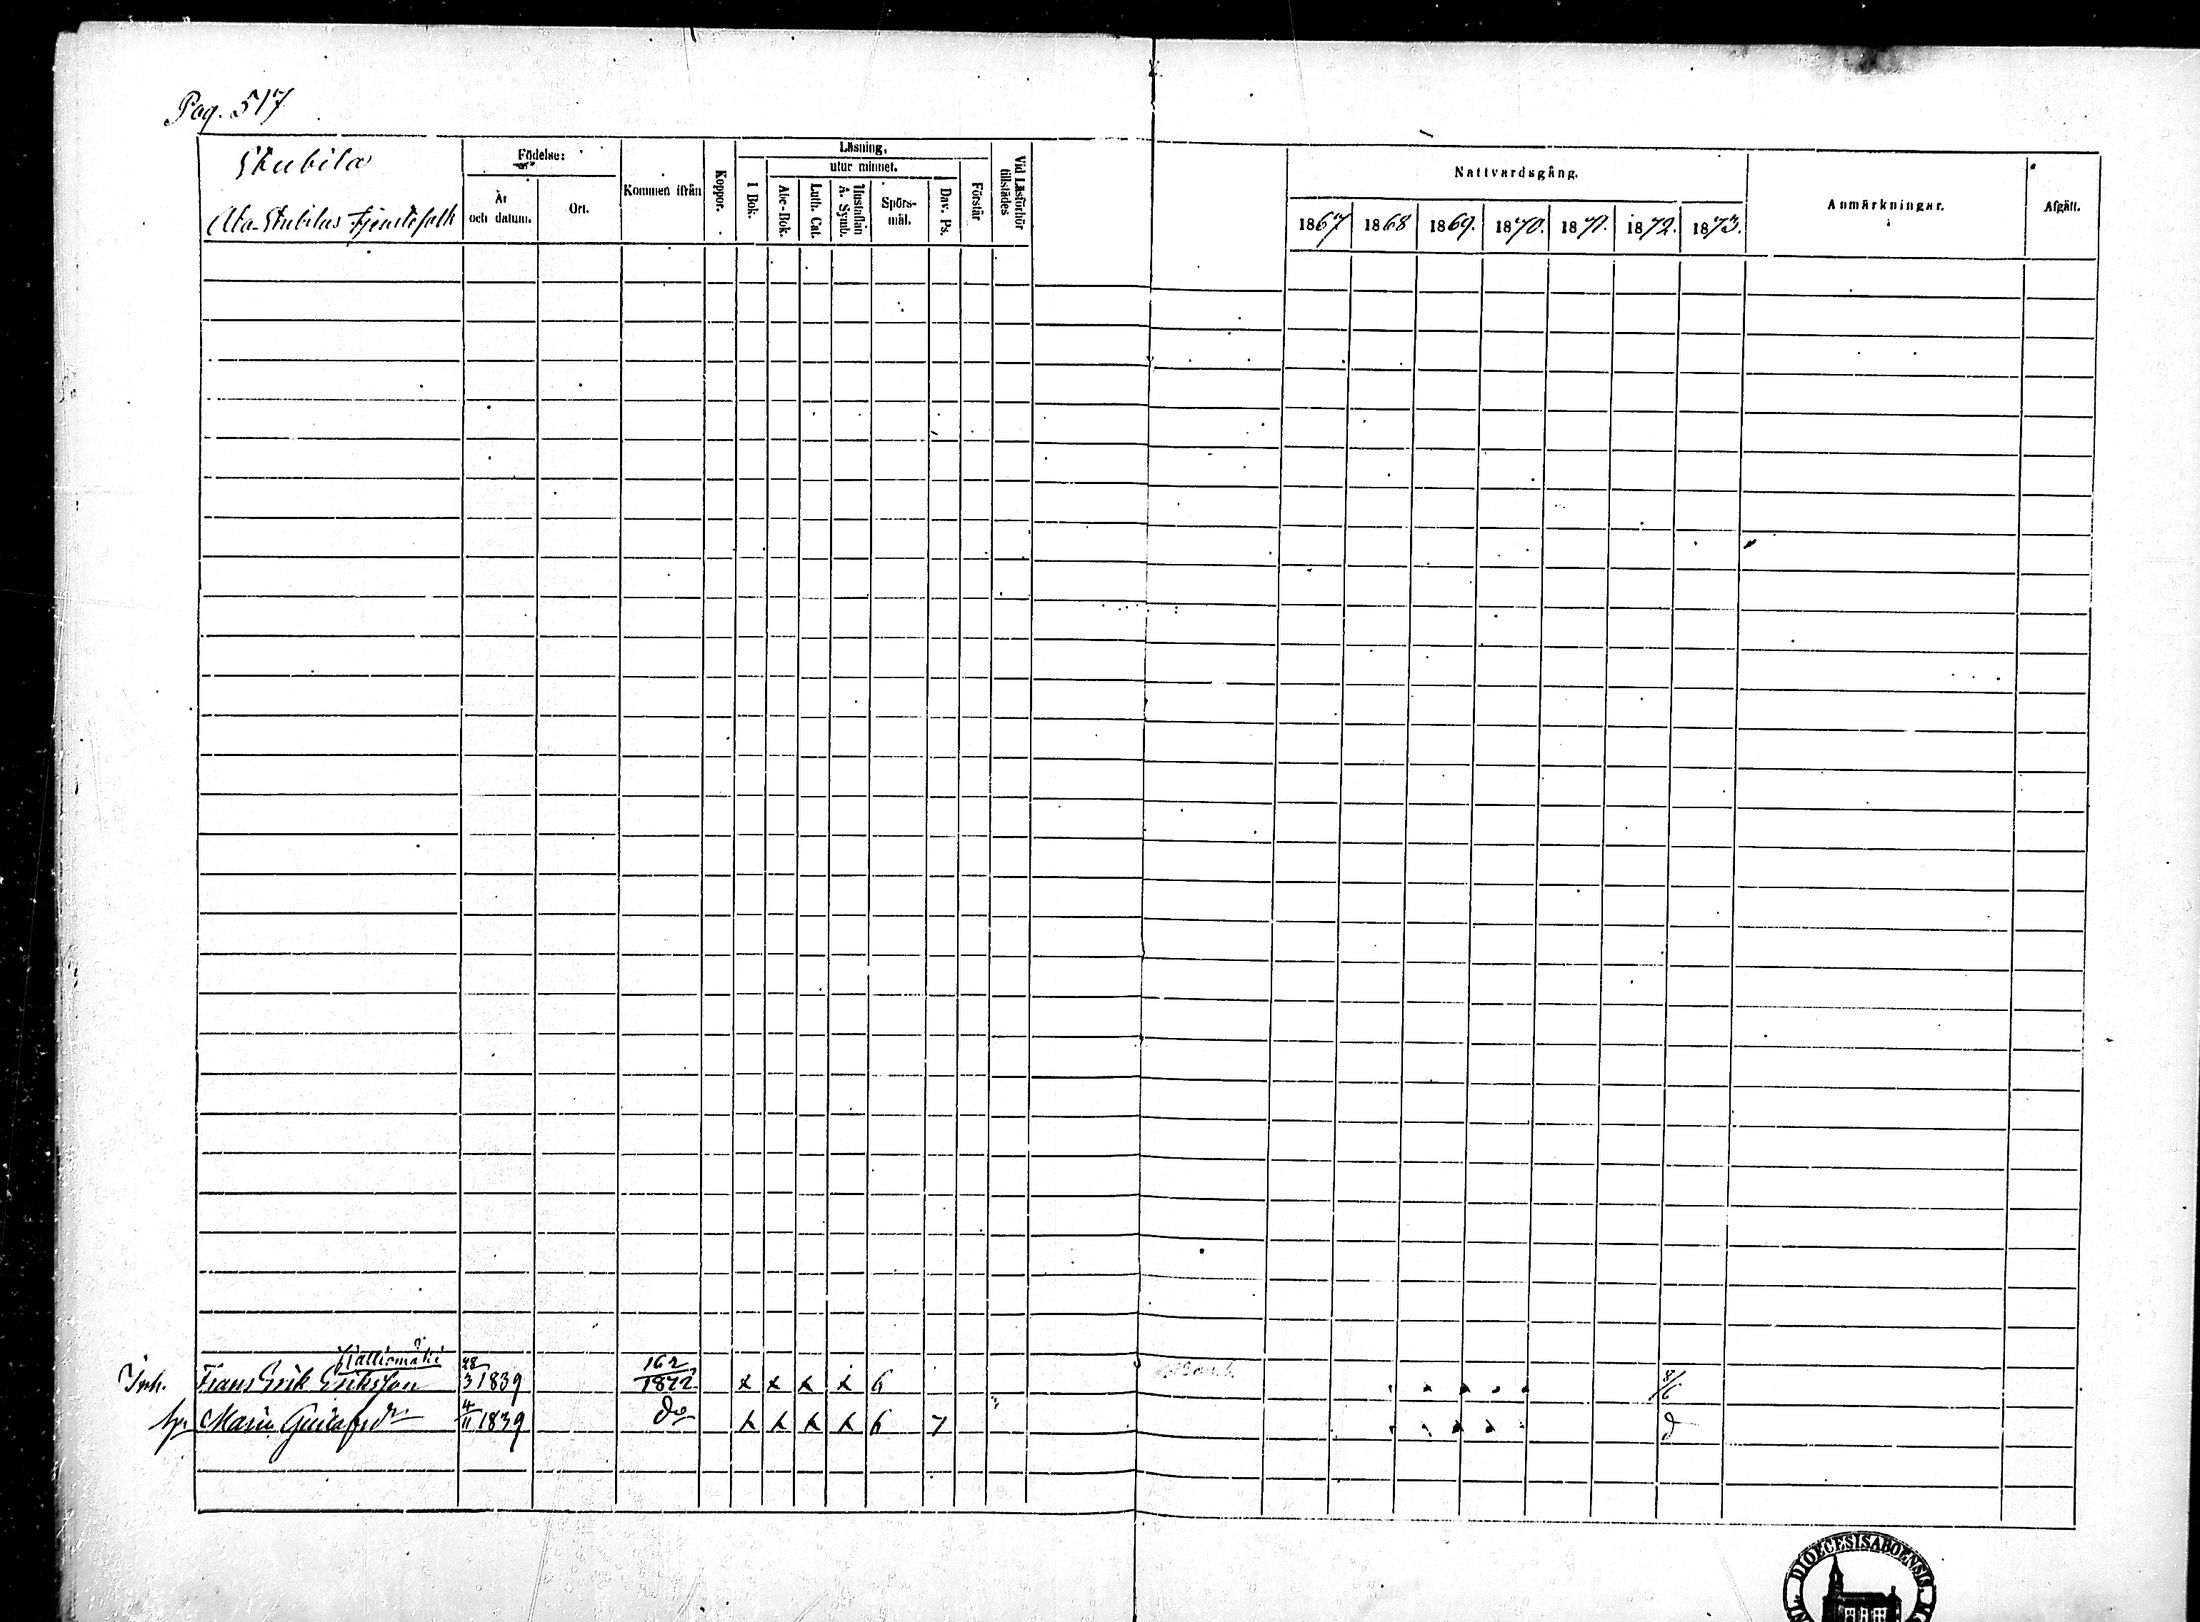 Pag. 517
Stubila
Ala-Stubilas tjenstefolk
Födelse:
År och datum.
Ort.
Kommen ifrån
Koppor.
Läsning,
utur minnet.
I Bok.
Abc-Bok.
Luth. Cat.
Hustaflan A. Symb.
Spörs-mål.
Dav. Ps.
Förstår
Vid Läsförhör tillstädes
Nattvardsgång.
1867 1868 1869. 1870. 1871. 1872. 1873.
Anmärkningar.
Afgått.
Kalliomäki
Inh. Frans Erik Eriksson 28/3 1839 162/1872 x x x x 6 8/6
hu Maria Gustafsdr 4/11 1839 do x x x x 6 7 d
DIOECESIS ABOENSIS